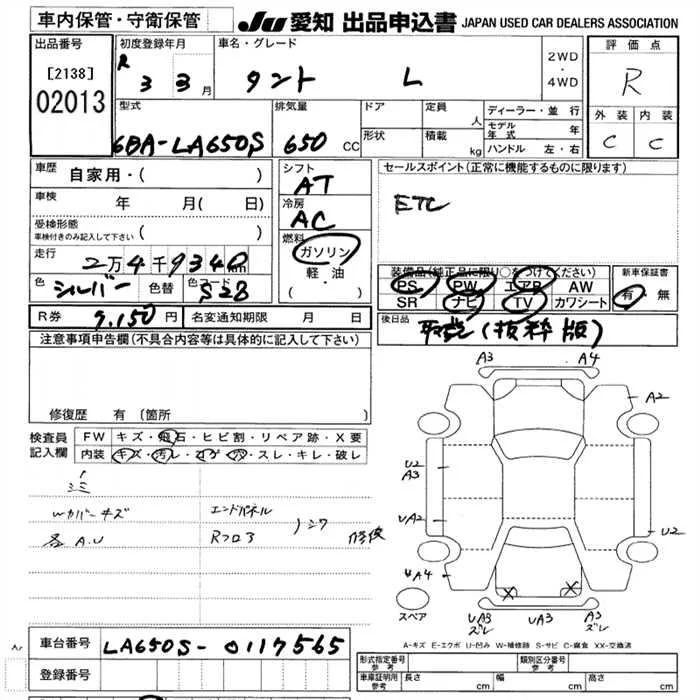 車内保管・守衛保管
JU 愛知 出品申込書 JAPAN USED CAR DEALERS ASSOCIATION
出品番号
[2138]
02013
初度登録年月
R 3 3 月
車名・グレード
タント L
2WD
・
4WD
評価点
R
外装 内装
C C
型式
6BA-LA650S
排気量
650 cc
ドア
形状
定員 人
積載 kg
ディーラー・並行
モデル年式 年
ハンドル 左・右
車歴
自家用・( )
車検 年 月( 日)
受検形態
車検付きのみ記入して下さい ( )
走行
2万4千934 km
色
シルバー
色替
色コード
S28
シフト
AT
冷房
AC
燃料
ガソリン
軽・油
・( )
セールスポイント(正常に機能するものに限ります)
ETC
装備品(純正品に限り○をつけてください)
PS PW エアB AW
SR ナビ TV カワシート
新車保証書
有・無
R券 9,150 円 名変通知期限 月 日
後日品
取説(抜粋版)
注意事項申告欄(不具合内容等は具体的に記入して下さい)
修復歴 有 (箇所
検査員
記入欄
FW キズ・飛石・ヒビ割・リペア跡・X要
内装 キズ・汚レ・コゲ・穴・スレ・キレ・破レ
Wカバーキズ
各A.U
エンドパネル
Rフロア
修復
A3 A4
A2
U2
A3
UA2
U2
A4
X X
スペア
UA3
ズレ
UA3
A3
ズレ
A-キズ E-エクボ U-凹み W-補修跡 S-サビ C-腐食 XX-交換済
車台番号
LA650S-0117565
登録番号
形式指定番号
参考
類別区分番号
参考
車庫証明用
参考
長さ cm 幅 cm 高さ cm